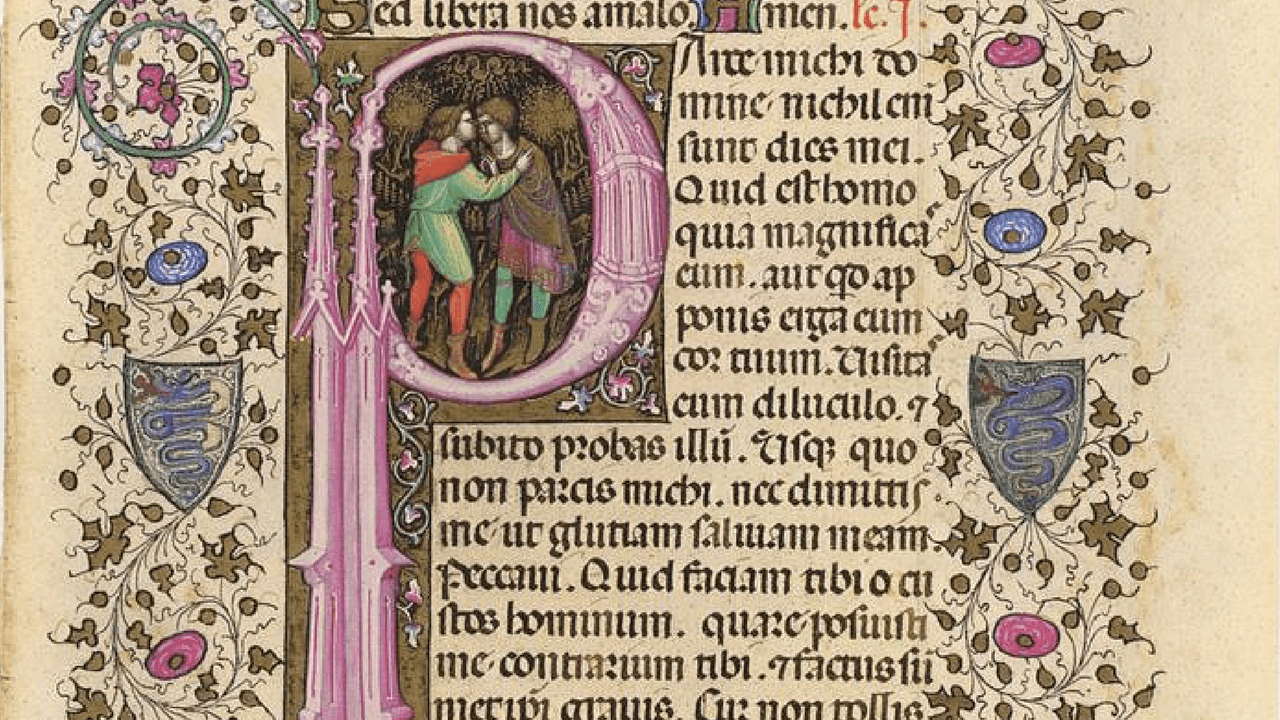 Sed libera nos amalo. Amen. lc. j.
Arce michi do
mine nichil eni
sunt dies mei.
Quid est homo
quia magnifica
eum. aut qd ap
ponis erga eum
cor tuum. Uisita
eum diluculo. ⁊
subito probas illū. Usqꝫ quo
non parcis michi. nec dimittis
me ut glutiam saliuam meam.
Peccaui. Quid faciam tibi o cu
stos hominum. quare posuisti
me contrarium tibi. ⁊ factus sū
met ipi grauis. Cur non tollis